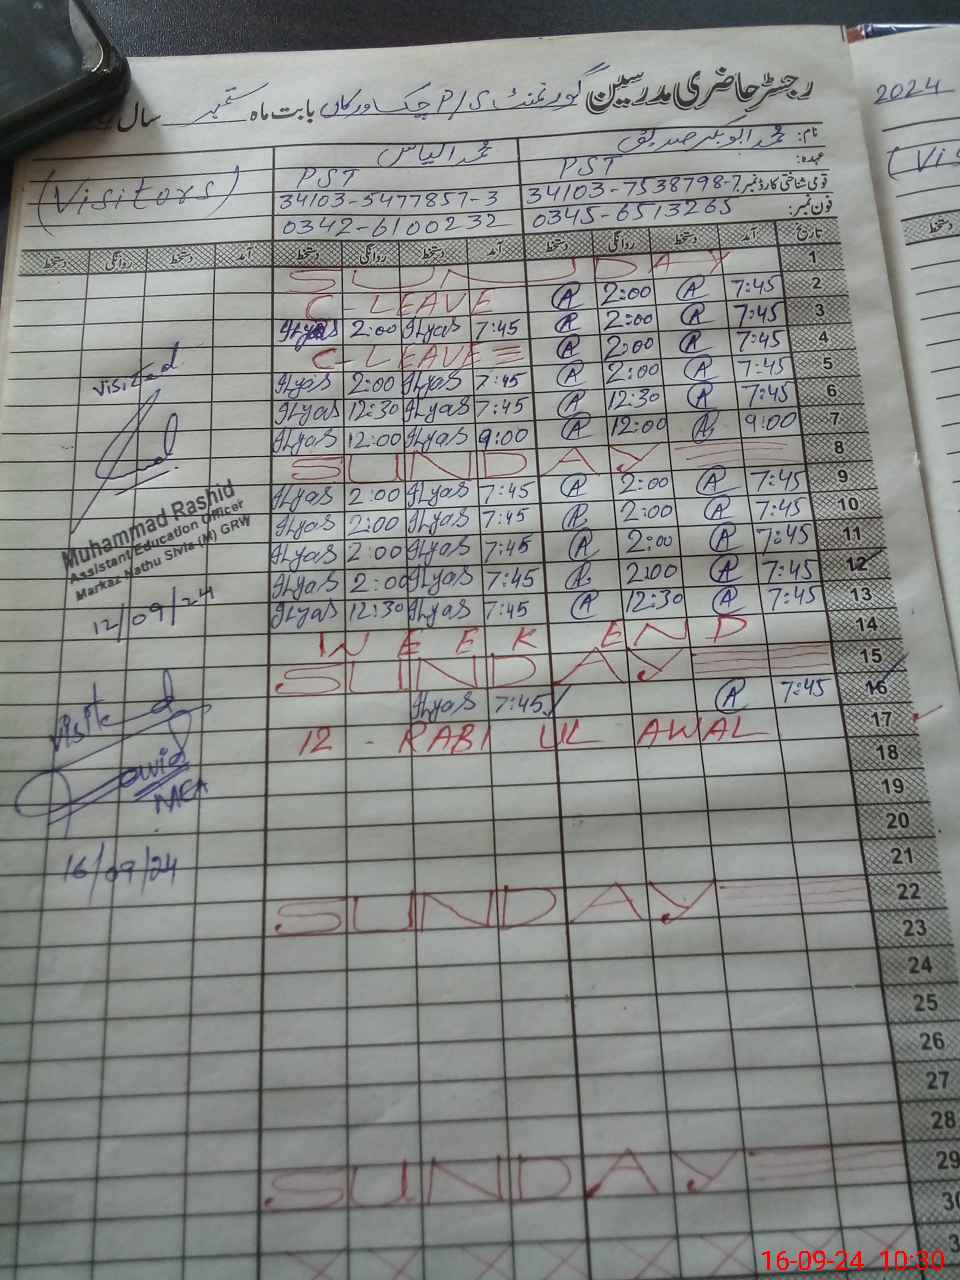 رجسٹر حاضری مدرسین گورنمنٹ P/S چک ورکاں بابت ماہ ستمبر سال
2024
نام: محمد ابوبکر صدیق محمد الیاس
عہدہ: PST PST (Visitors)
قومی شناختی کارڈ نمبر: 34103-7538798-7 34103-5477857-3
فون نمبر: 0345-6513265 0342-6100232
تاریخ آمد دستخط روانگی دستخط آمد دستخط روانگی دستخط آمد دستخط روانگی دستخط
1 SUNDAY
2 7:45 A 2:00 A C-LEAVE
3 7:45 A 2:00 A 7:45 Ilyas 2:00 Ilyas
4 7:45 A 2:00 A C-LEAVE
5 7:45 A 2:00 A 7:45 Ilyas 2:00 Ilyas
6 7:45 A 12:30 A 7:45 Ilyas 12:30 Ilyas
7 9:00 A 12:00 A 9:00 Ilyas 12:00 Ilyas
8 SUNDAY
9 7:45 A 2:00 A 7:45 Ilyas 2:00 Ilyas
10 7:45 A 2:00 A 7:45 Ilyas 2:00 Ilyas
11 7:45 A 2:00 A 7:45 Ilyas 2:00 Ilyas
12 7:45 A 2:00 A 7:45 Ilyas 2:00 Ilyas
13 7:45 A 12:30 A 7:45 Ilyas 12:30 Ilyas
14 WEEK END
15 SUNDAY
16 7:45 A 7:45 Ilyas
17 12 - RABI UL AWAL
18
19
20
21
22 SUNDAY
23
24
25
26
27
28
29 SUNDAY
30
Visited
Muhammad Rashid
Assistant Education Officer
Markaz Nathu Sivia (M) GRW
12/09/24
Visited
MEA
16/09/24
16-09-24 10:30